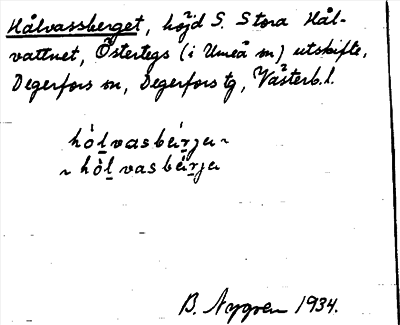 Hålvassberget, höjd S. Stora Hål-
vattnet, Östertegs (i Umeå sn) utskifte,
Degerfors sn, Degerfors tg, Västerb. l.
hòlvasbǽrja ~
~ hòlvasbærja
B. Nygren 1934.